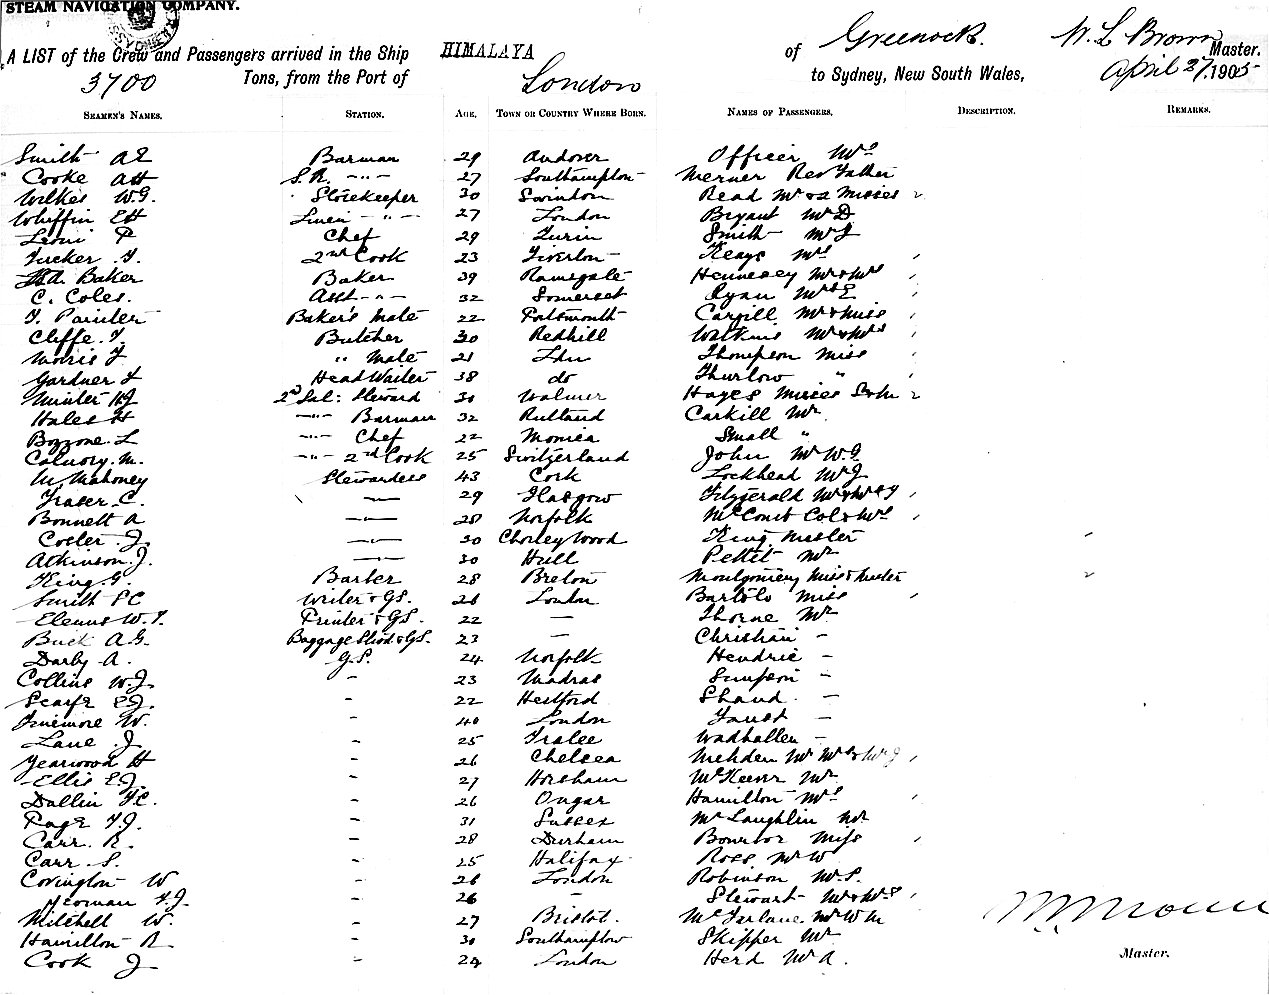 STEAM NAVIGATION COMPANY.
A LIST of the Crew and Passengers arrived in the Ship HIMALAYA of Greenock. W. L Brown Master.
3700 Tons, from the Port of London to Sydney, New South Wales, April 27. 1905
SEAMEN'S NAMES. STATION. AGE. TOWN OR COUNTRY WHERE BORN. NAMES OF PASSENGERS. DESCRIPTION. REMARKS.
Smith AE Barman 29 Andover Officer Mrs
Cooke AH S.R. -"- 27 Southampton Merner Rev Father
Wilkes W.G. Storekeeper 30 Swindon Read Mr & 2 Misses
Whiffin EH Linen -"- 27 London Bryant Mr D
Leoni P Chef 29 Turin Smith Mr J
Tucker J. 2nd Cook 23 Tiverton Keays Mrs
Baker Baker 39 Ramsgate Hennessy Mr & Mrs
C. Coles. Asst -"- 32 Somerset Ryan Mrs E
J. Painter Baker's Mate 22 Portsmouth Cargill Mr & Miss
Cliffe. J. Butcher 30 Redhill Watkins Mr & Mrs
Morris J " Mate 21 Ldn Thompson Miss
Gardner J Head Waiter 38 do Thurlow "
Minter HJ 2d Sal: Steward 30 Walmer Hayes Misses S & M
Hales H -"- Barman 32 Rutland Carkill Mr
Bozzone. L -"- Chef 22 Monica Small "
M. -"- 2nd Cook 25 Switzerland John Mr W.G.
M. Mahoney Stewardess 43 Cork Lockhead Mr J.
Fraser. C. -"- 29 Glasgow Fitzgerald Mr & Mrs
Bonnett A -"- 28 Norfolk McComb Col & Mrs
Coster J. -"- 30 Chorley Wood King Master
Atkinson J. -"- 30 Hull Pettit Mr
King G. Barber 28 Breton Montgomery Miss & Master
Smith PC Writer & G.S. 26 London Bartolo Miss
W.J. Printer & G.S. 22 - Thorne Mr
Buck A.G. Baggage Stwd & G.S. 23 - Christian -
Darby A. G.S. 24 Norfolk Hendrie -
Collins W.J. - 23 Madras Simpson -
Scarfe E.J. - 22 Hertford Shand. -
W. - 40 London Faust -
Lane J. - 25 Tralee Wadhallen -
Yearwood H - 26 Chelsea Mehden Mr Mrs & Mr J
Ellis E.J. - 27 Horsham McKeever Mr
Dallin F.C. - 26 Ongar Hamilton Mrs
Page F.J. - 31 Sussex McLaughlin Mr
Carr. R. - 28 Durham Miss
Carr. S. - 25 Halifax Ross Mr W
Covington W - 26 London Robinson Mr. S.
Yeoman F.J. - 26 - Stewart Mr & Mrs
Mitchell W. - 27 Bristol. McFarlane. Mr W M
Hamilton R - 30 Southampton Skipper Mr
Cook J - 24 London Herd Mr A.
Master.